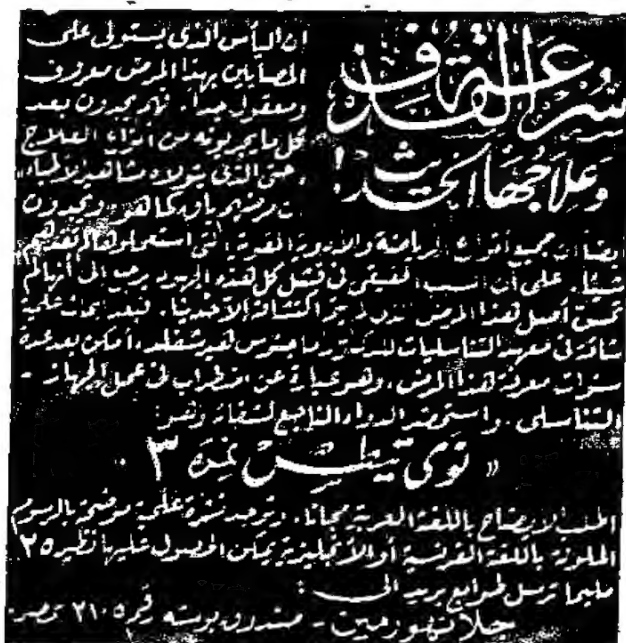 سرعة القذف
وعلاجها الحديث!
ان اليأس الذى يستولى على
المصابين بهذا المرض معروف
ومعقول جداً. فهم يجدون بعد
كل ما يجربونه من أنواع العلاج
حتى الذى يتولاه مشاهير الأطباء
مرضهم باق كما هو. ويجدون
أيضاً أن جميع أنواع الرياضة والأدوية المقوية التى استعملوها لم تفدهم
شيئاً. على أن السبب الحقيقى فى فشل كل هذه الجهود يرجع الى أنها لم
تمس أصل هذا المرض الذى لم يتم اكتشافه إلا حديثا. فبعد ابحاث علمية
شاقة فى معهد التناسليات للدكتور ماجنوس هيرشفلد، أمكن بعد عدة
سنوات معرفة هذا المرض، وهو عبارة عن اضطراب فى عمل الجهاز
التناسلى. واستحضر الدواء الناجع لشفائه وهو:
« نوى تيتلس نمرة ٣ »
اطلب الايضاح باللغة العربية مجانا. وتوجد نشرة علمية موضحة بالرسوم
الملونة باللغة الفرنسية أو الأنجليزية يمكن الحصول عليها نظير ٢٥
مليما ترسل طوابع بريد الى:
جلانهورمين - صندوق بوسته رقم ٢١٠٥ بمصر.